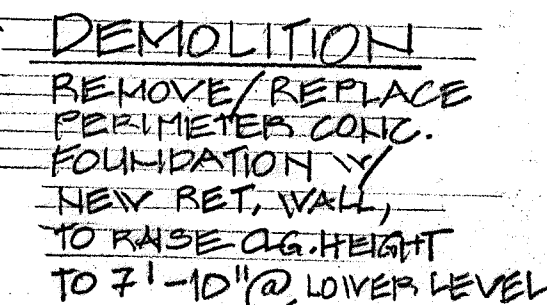 DEMOLITION
REMOVE/REPLACE
PERIMETER CONC.
FOUNDATION W/
NEW RET. WALL,
TO RAISE CLG. HEIGHT
TO 7'-10" @ LOWER LEVEL